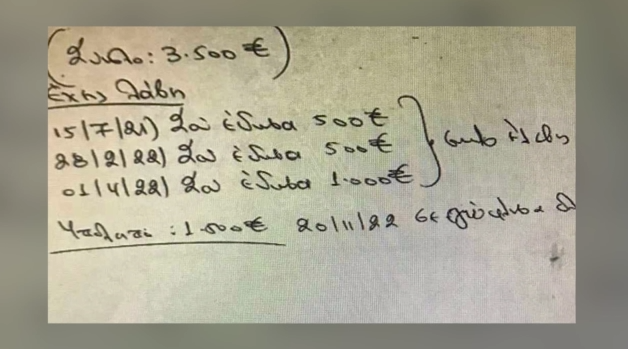 (Σύνολο: 3.500 €)
Έχεις λάβει
15/7/21) Σου έδωσα 500€
28/2/22) Σου έδωσα 500€
01/4/22) Σου έδωσα 1.000€
Υπόλοιπο: 1.500€ 20/11/22 σε